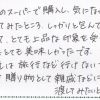 のスーパーで購入し、気になっ
てみたところ、しっかりと包んで
て、とても上品な印象を受
とても美味しかったです。
しは旅行など行けない
て贈り物として親戚などに
渡してみたいと